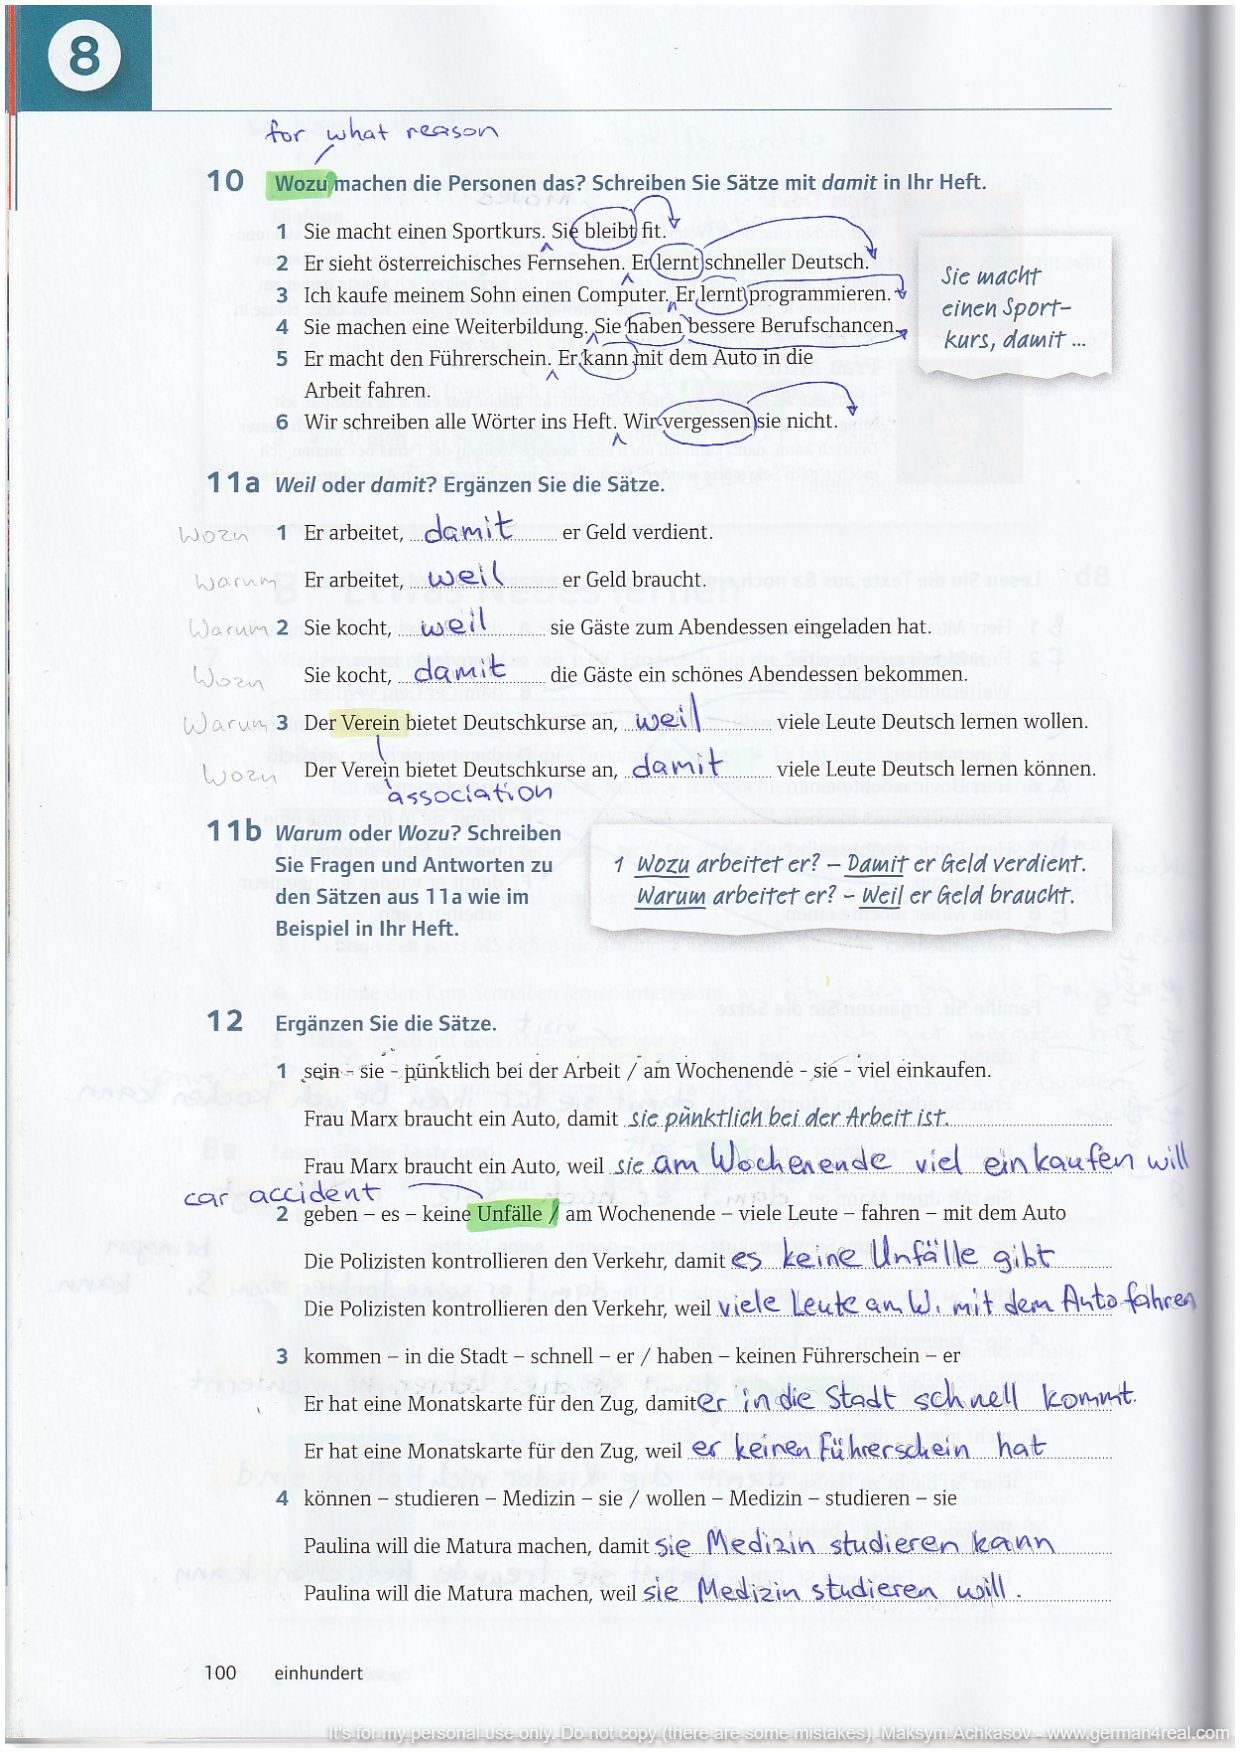 8
for what reason
10 Wozu machen die Personen das? Schreiben Sie Sätze mit damit in Ihr Heft.
1 Sie macht einen Sportkurs. Sie bleibt fit.
2 Er sieht österreichisches Fernsehen. Er lernt schneller Deutsch.
3 Ich kaufe meinem Sohn einen Computer. Er lernt programmieren.
4 Sie machen eine Weiterbildung. Sie haben bessere Berufschancen.
5 Er macht den Führerschein. Er kann mit dem Auto in die
Arbeit fahren.
6 Wir schreiben alle Wörter ins Heft. Wir vergessen sie nicht.
Sie macht
einen Sport-
kurs, damit ...
11a Weil oder damit? Ergänzen Sie die Sätze.
Wozu 1 Er arbeitet, damit er Geld verdient.
Warum Er arbeitet, weil er Geld braucht.
Warum 2 Sie kocht, weil sie Gäste zum Abendessen eingeladen hat.
Wozu Sie kocht, damit die Gäste ein schönes Abendessen bekommen.
Warum 3 Der Verein bietet Deutschkurse an, weil viele Leute Deutsch lernen wollen.
Wozu Der Verein bietet Deutschkurse an, damit viele Leute Deutsch lernen können.
association
11b Warum oder Wozu? Schreiben
Sie Fragen und Antworten zu
den Sätzen aus 11a wie im
Beispiel in Ihr Heft.
1 Wozu arbeitet er? – Damit er Geld verdient.
Warum arbeitet er? – Weil er Geld braucht.
12 Ergänzen Sie die Sätze.
1 sein - sie - pünktlich bei der Arbeit / am Wochenende - sie - viel einkaufen.
Frau Marx braucht ein Auto, damit sie pünktlich bei der Arbeit ist.
Frau Marx braucht ein Auto, weil sie am Wochenende viel einkaufen will
car accident
2 geben – es – keine Unfälle / am Wochenende – viele Leute – fahren – mit dem Auto
Die Polizisten kontrollieren den Verkehr, damit es keine Unfälle gibt
Die Polizisten kontrollieren den Verkehr, weil viele Leute am W. mit dem Auto fahren
3 kommen – in die Stadt – schnell – er / haben – keinen Führerschein – er
Er hat eine Monatskarte für den Zug, damit er in die Stadt schnell kommt.
Er hat eine Monatskarte für den Zug, weil er keinen Führerschein hat
4 können – studieren – Medizin – sie / wollen – Medizin – studieren – sie
Paulina will die Matura machen, damit sie Medizin studieren kann
Paulina will die Matura machen, weil sie Medizin studieren will.
100 einhundert
It's for my personal use only. Do not copy (there are some mistakes). Maksym Achkasov - www.german4real.com